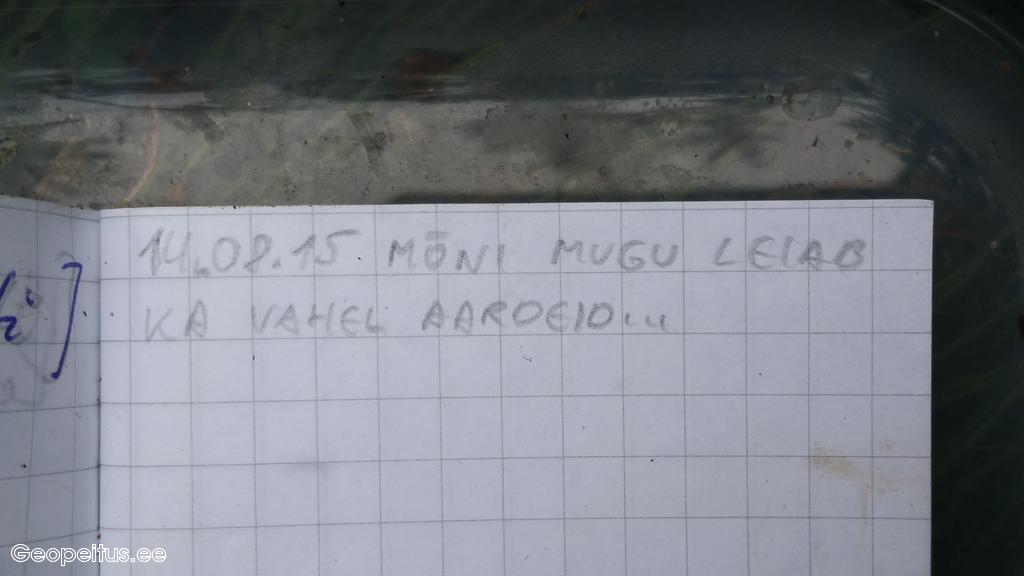 14.08.15 MÕNI MUGU LEIAB
KA VAHEL AARDEID...
Geopeitus.ee